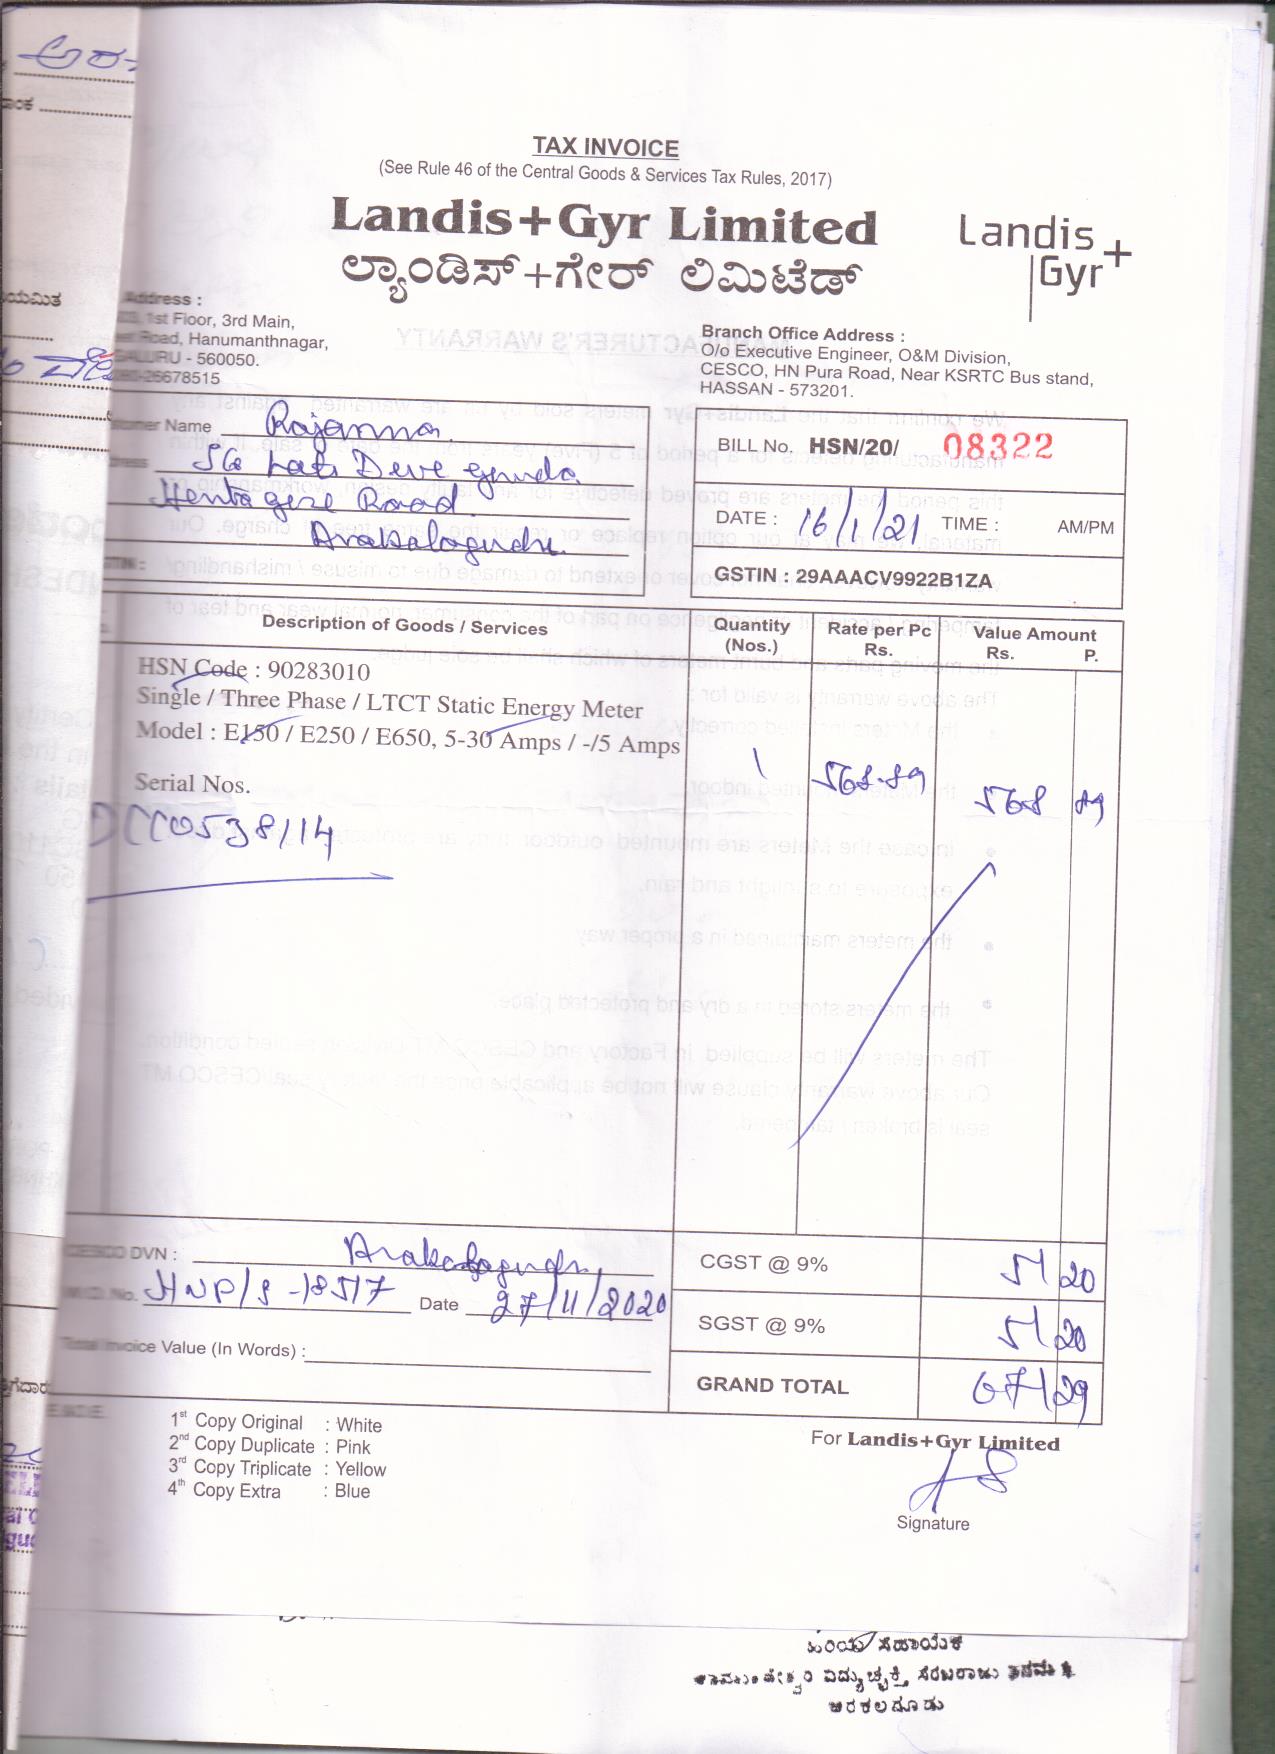 TAX INVOICE
(See Rule 46 of the Central Goods & Services Tax Rules, 2017)
Landis+Gyr Limited
ಲ್ಯಾಂಡಿಸ್+ಗೇರ್ ಲಿಮಿಟೆಡ್
Landis+
Gyr
Address :
1st Floor, 3rd Main,
Road, Hanumanthnagar,
- 560050.
26678515
Branch Office Address :
O/o Executive Engineer, O&M Division,
CESCO, HN Pura Road, Near KSRTC Bus stand,
HASSAN - 573201.
Name Rajanna
S/o Late Deve gowda
Road
Arakalagudu
BILL No. HSN/20/ 08322
DATE : 16/1/21 TIME : AM/PM
GSTIN : 29AAACV9922B1ZA
Description of Goods / Services Quantity (Nos.) Rate per Pc Rs. Value Amount Rs. P.
HSN Code : 90283010
Single / Three Phase / LTCT Static Energy Meter
Model : E150 / E250 / E650, 5-30 Amps / -/5 Amps
1 568.89 568 89
Serial Nos.
DCC0538114
CESCO DVN : Arakalagudu
CGST @ 9% 51 20
No. HNP/S-18517 Date 27/11/2020
SGST @ 9% 51 20
Total Invoice Value (In Words) :
GRAND TOTAL 671 29
1st Copy Original : White
2nd Copy Duplicate : Pink
3rd Copy Triplicate : Yellow
4th Copy Extra : Blue
For Landis+Gyr Limited
Signature
ಹಿರಿಯ ಸಹಾಯಕ
ವಿದ್ಯುಚ್ಛಕ್ತಿ ಸರಬರಾಜು
ಅರಕಲಗೂಡು